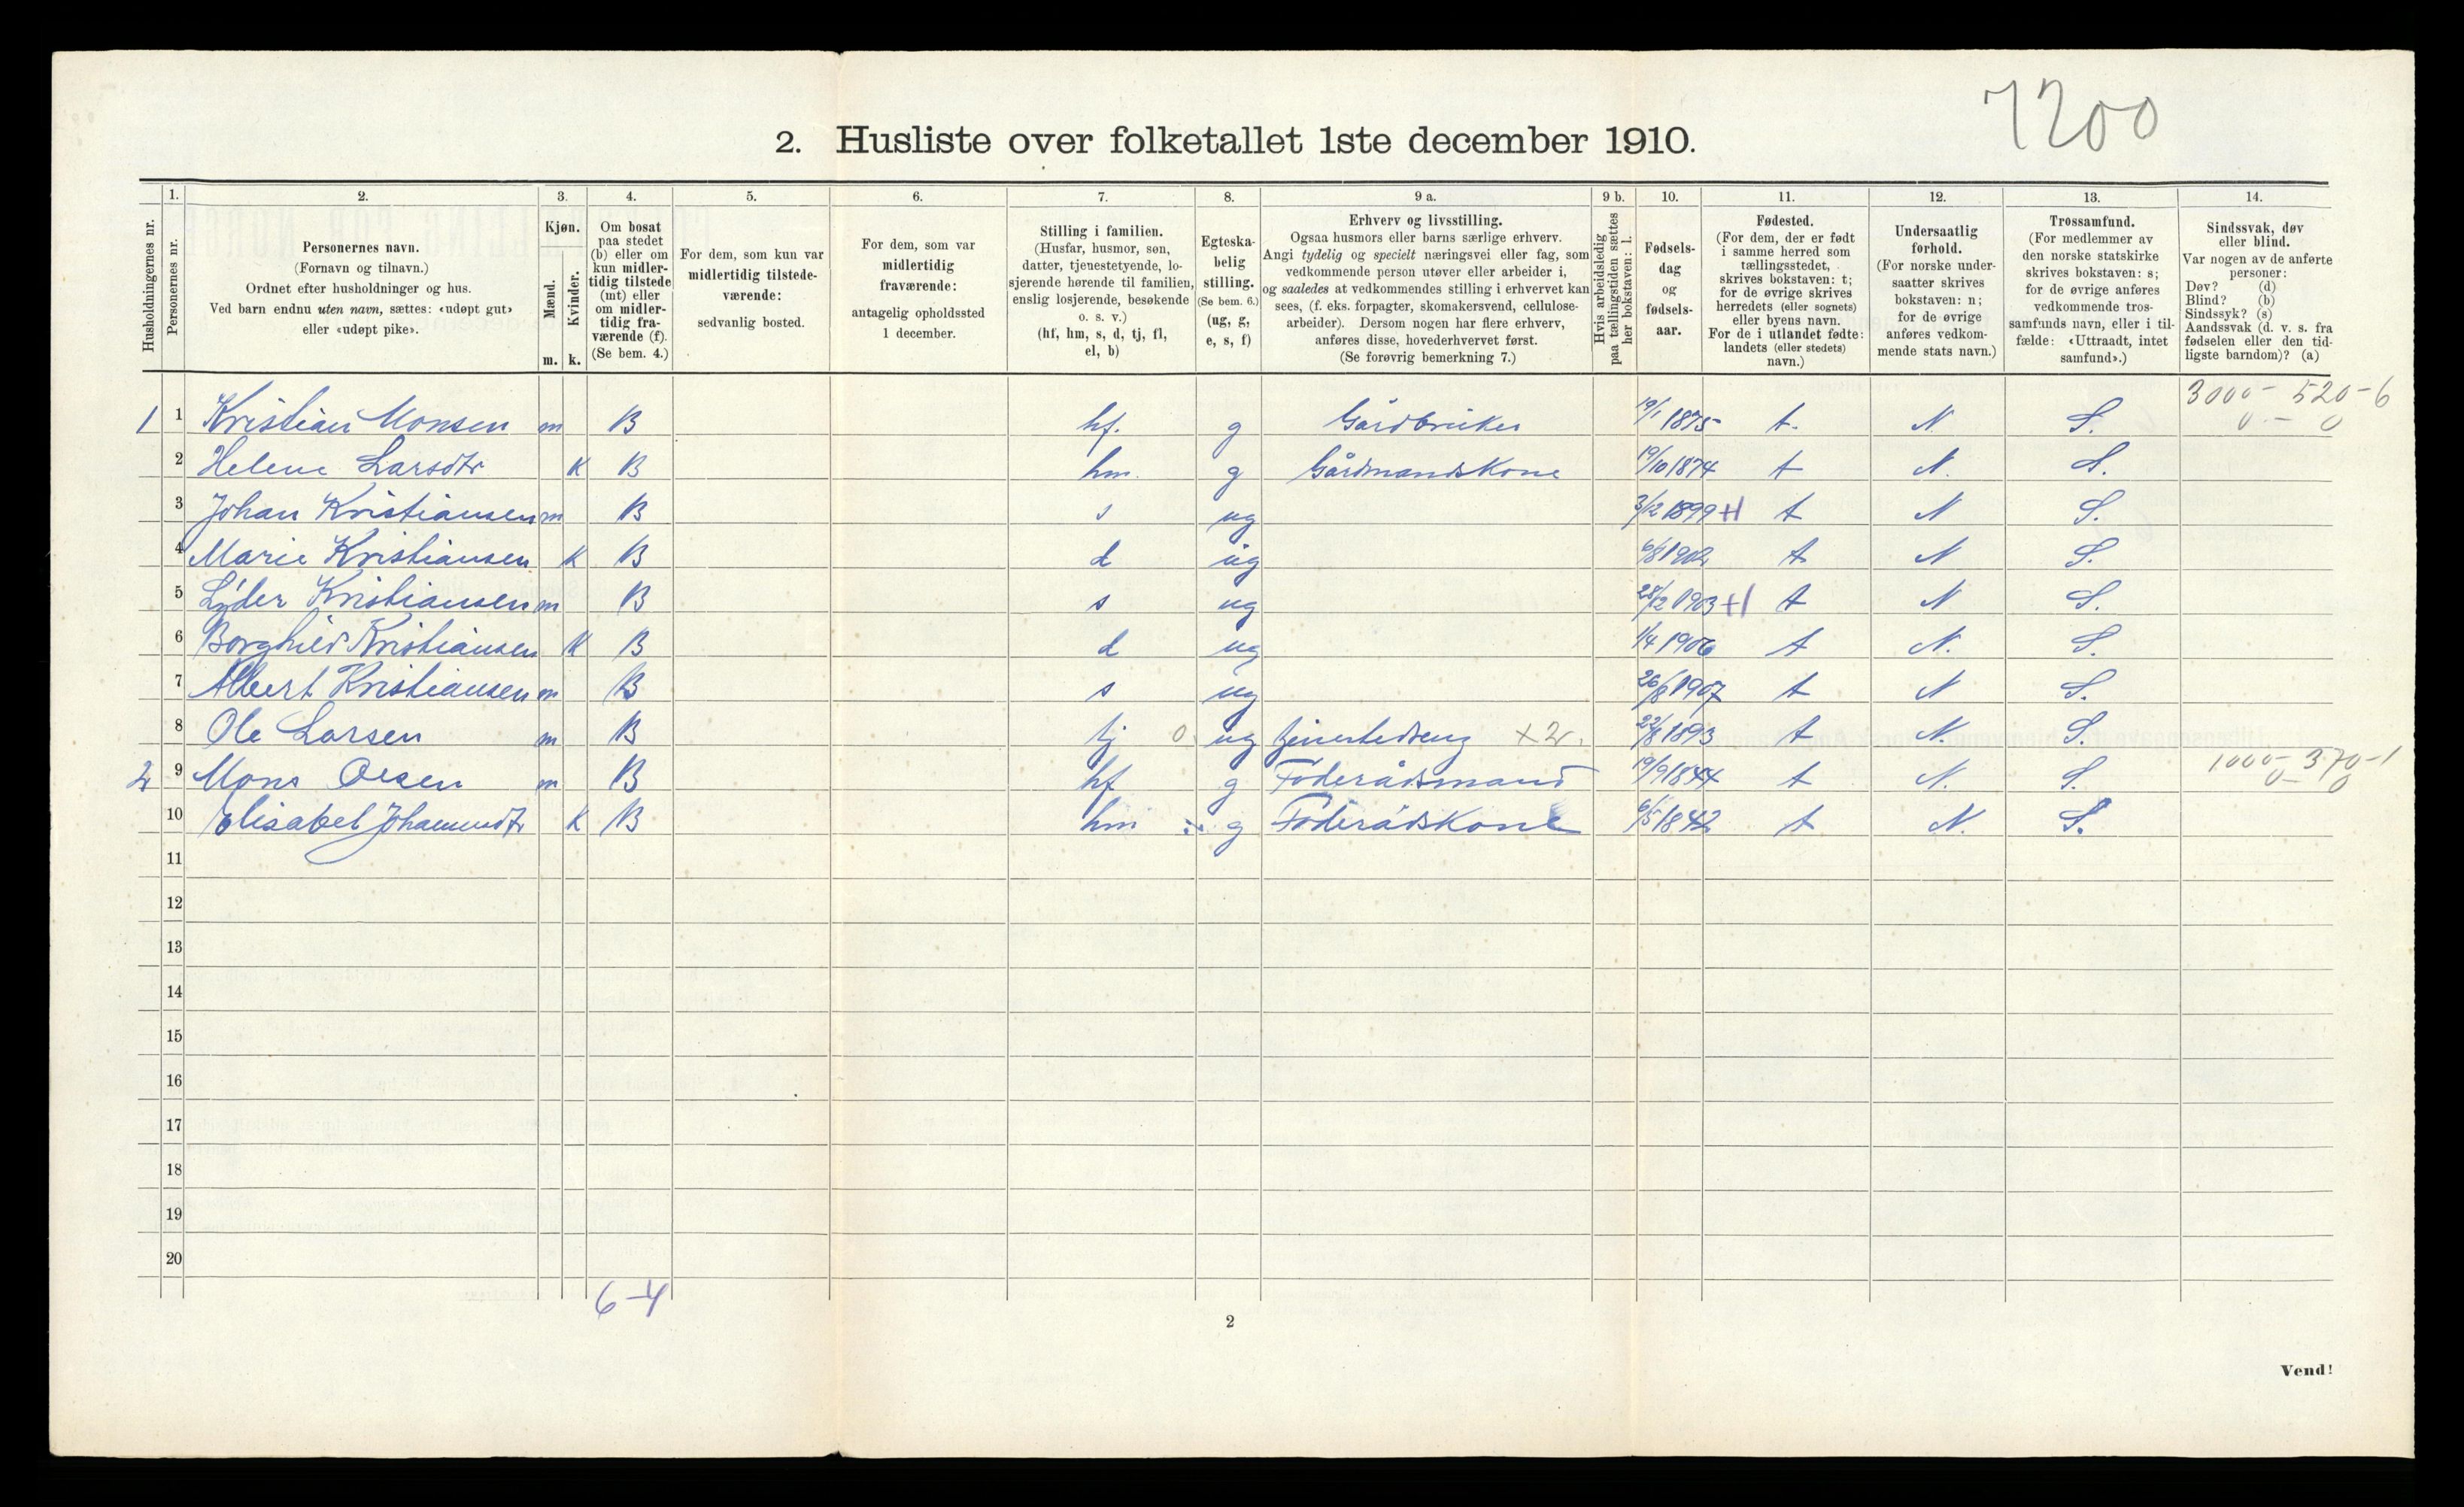 7200
2. Husliste over folketallet 1ste december 1910.
Husholdningernes nr.
1. Personernes nr.
2. Personernes navn. (Fornavn og tilnavn.) Ordnet efter husholdninger og hus. Ved barn endnu uten navn, sættes: «udøpt gut» eller «udøpt pike».
3. Kjøn. Mænd. m. Kvinder. k.
4. Om bosat paa stedet (b) eller om kun midlertidig tilstede (mt) eller om midlertidig fraværende (f). (Se bem. 4.)
5. For dem, som kun var midlertidig tilstedeværende: sedvanlig bosted.
6. For dem, som var midlertidig fraværende: antagelig opholdssted 1 december.
7. Stilling i familien. (Husfar, husmor, søn, datter, tjenestetyende, losjerende hørende til familien, enslig losjerende, besøkende o. s. v.) (hf, hm, s, d, tj, fl, el, b)
8. Egteskabelig stilling. (Se bem. 6.) (ug, g, e, s, f)
9 a. Erhverv og livsstilling. Ogsaa husmors eller barns særlige erhverv. Angi tydelig og specielt næringsvei eller fag, som vedkommende person utøver eller arbeider i, og saaledes at vedkommendes stilling i erhvervet kan sees, (f. eks. forpagter, skomakersvend, cellulosearbeider). Dersom nogen har flere erhverv, anføres disse, hovederhvervet først. (Se forøvrig bemerkning 7.)
9 b. Hvis arbeidsledig paa tællingstiden sættes her bokstaven: l.
10. Fødselsdag og fødselsaar.
11. Fødested. (For dem, der er født i samme herred som tællingsstedet, skrives bokstaven: t; for de øvrige skrives herredets (eller sognets) eller byens navn. For de i utlandet fødte: landets (eller stedets) navn.)
12. Undersaatlig forhold. (For norske undersaatter skrives bokstaven: n; for de øvrige anføres vedkommende stats navn.)
13. Trossamfund. (For medlemmer av den norske statskirke skrives bokstaven: s; for de øvrige anføres vedkommende trossamfunds navn, eller i tilfælde: «Uttraadt, intet samfund».)
14. Sindssvak, døv eller blind. Var nogen av de anførte personer: Døv? (d) Blind? (b) Sindssyk? (s) Aandssvak (d. v. s. fra fødselen eller den tidligste barndom)? (a)
1 1 Kristian Monsen m B hf. g Gårdbruker 19/1 1875 t. N S. 3000 - 520 - 6 0 - 0
2 Helene Larsdtr k B hm. g Gårdmandskone 19/10 1874 t N. S.
3 Johan Kristiansen m B s ug 3/12 1899 t N S.
4 Marie Kristiansen k B d ug 6/8 1902 t N S.
5 Lyder Kristiansen m B s ug 28/12 1903 t N S.
6 Borghild Kristiansen k B d ug 1/4 1906 t N. S.
7 Albert Kristiansen m B s ug 26/8 1907 t N S.
8 Ole Larsen m B tj 0 ug tjenestedreng x 2 22/8 1893 t N. S.
2 9 Mons Olsen m B hf g Føderådsmand 19/9 1844 t N. S. 1000 - 370 - 1 0 - 0
10 Elisabet k B hm g Føderådskone 6/5 1842 t N. S.
11
12
13
14
15
16
17
18
19
20
6-4
2
Vend!